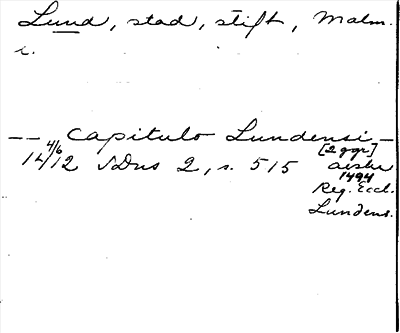 Lund, stad, stift, Malm.
l.
-- Capitulo Lundensi -
[2 ggr]
14 4/6 12 SDns 2, s. 515 avskr
1494
Reg. Eccl.
Lundens.